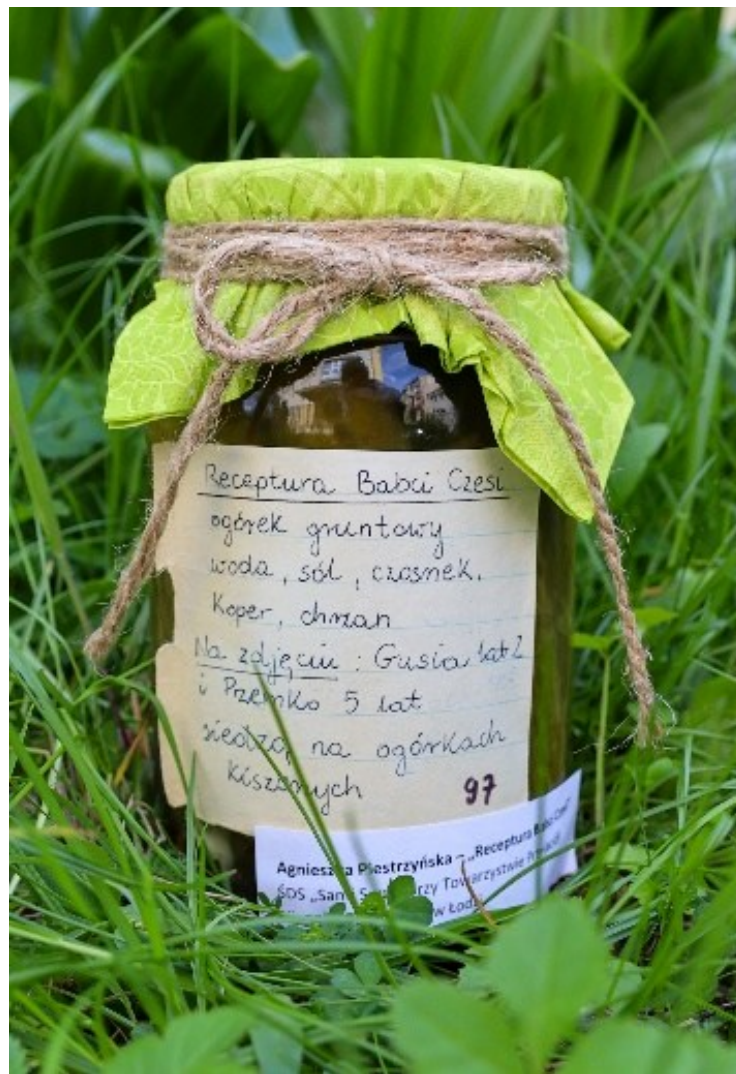 Receptura Babci Czesi
ogórek gruntowy
woda, sól, czosnek,
koper, chrzan
Na zdjęciu: Gusia lat 2
i Przemko 5 lat
siedzą na ogórkach
kiszonych 97
Agnieszka Piestrzyńska – „Receptura Babci Czesi”
ŚDS „Sami Swoi” przy Towarzystwie
w Łodzi